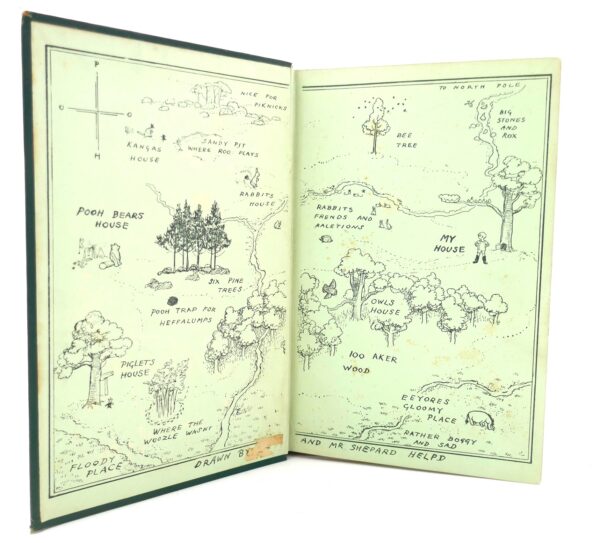 P
O
O
H
NICE FOR
PIKNICKS
KANGAS
HOUSE
SANDY PIT
WHERE ROO PLAYS
RABBITS
HOUSE
POOH BEARS
HOUSE
SIX PINE
TREES
POOH TRAP FOR
HEFFALUMPS
PIGLETS
HOUSE
WHERE THE
WOOZLE WASNT
FLOODY
PLACE
DRAWN BY
TO NORTH POLE
BIG
STONES
AND
ROX
BEE
TREE
RABBITS
FRENDS AND
RALETIONS
MY
HOUSE
OWLS
HOUSE
100 AKER
WOOD
EEYORES
GLOOMY
PLACE
RATHER BOGGY
AND SAD
AND MR SHEPARD HELPD